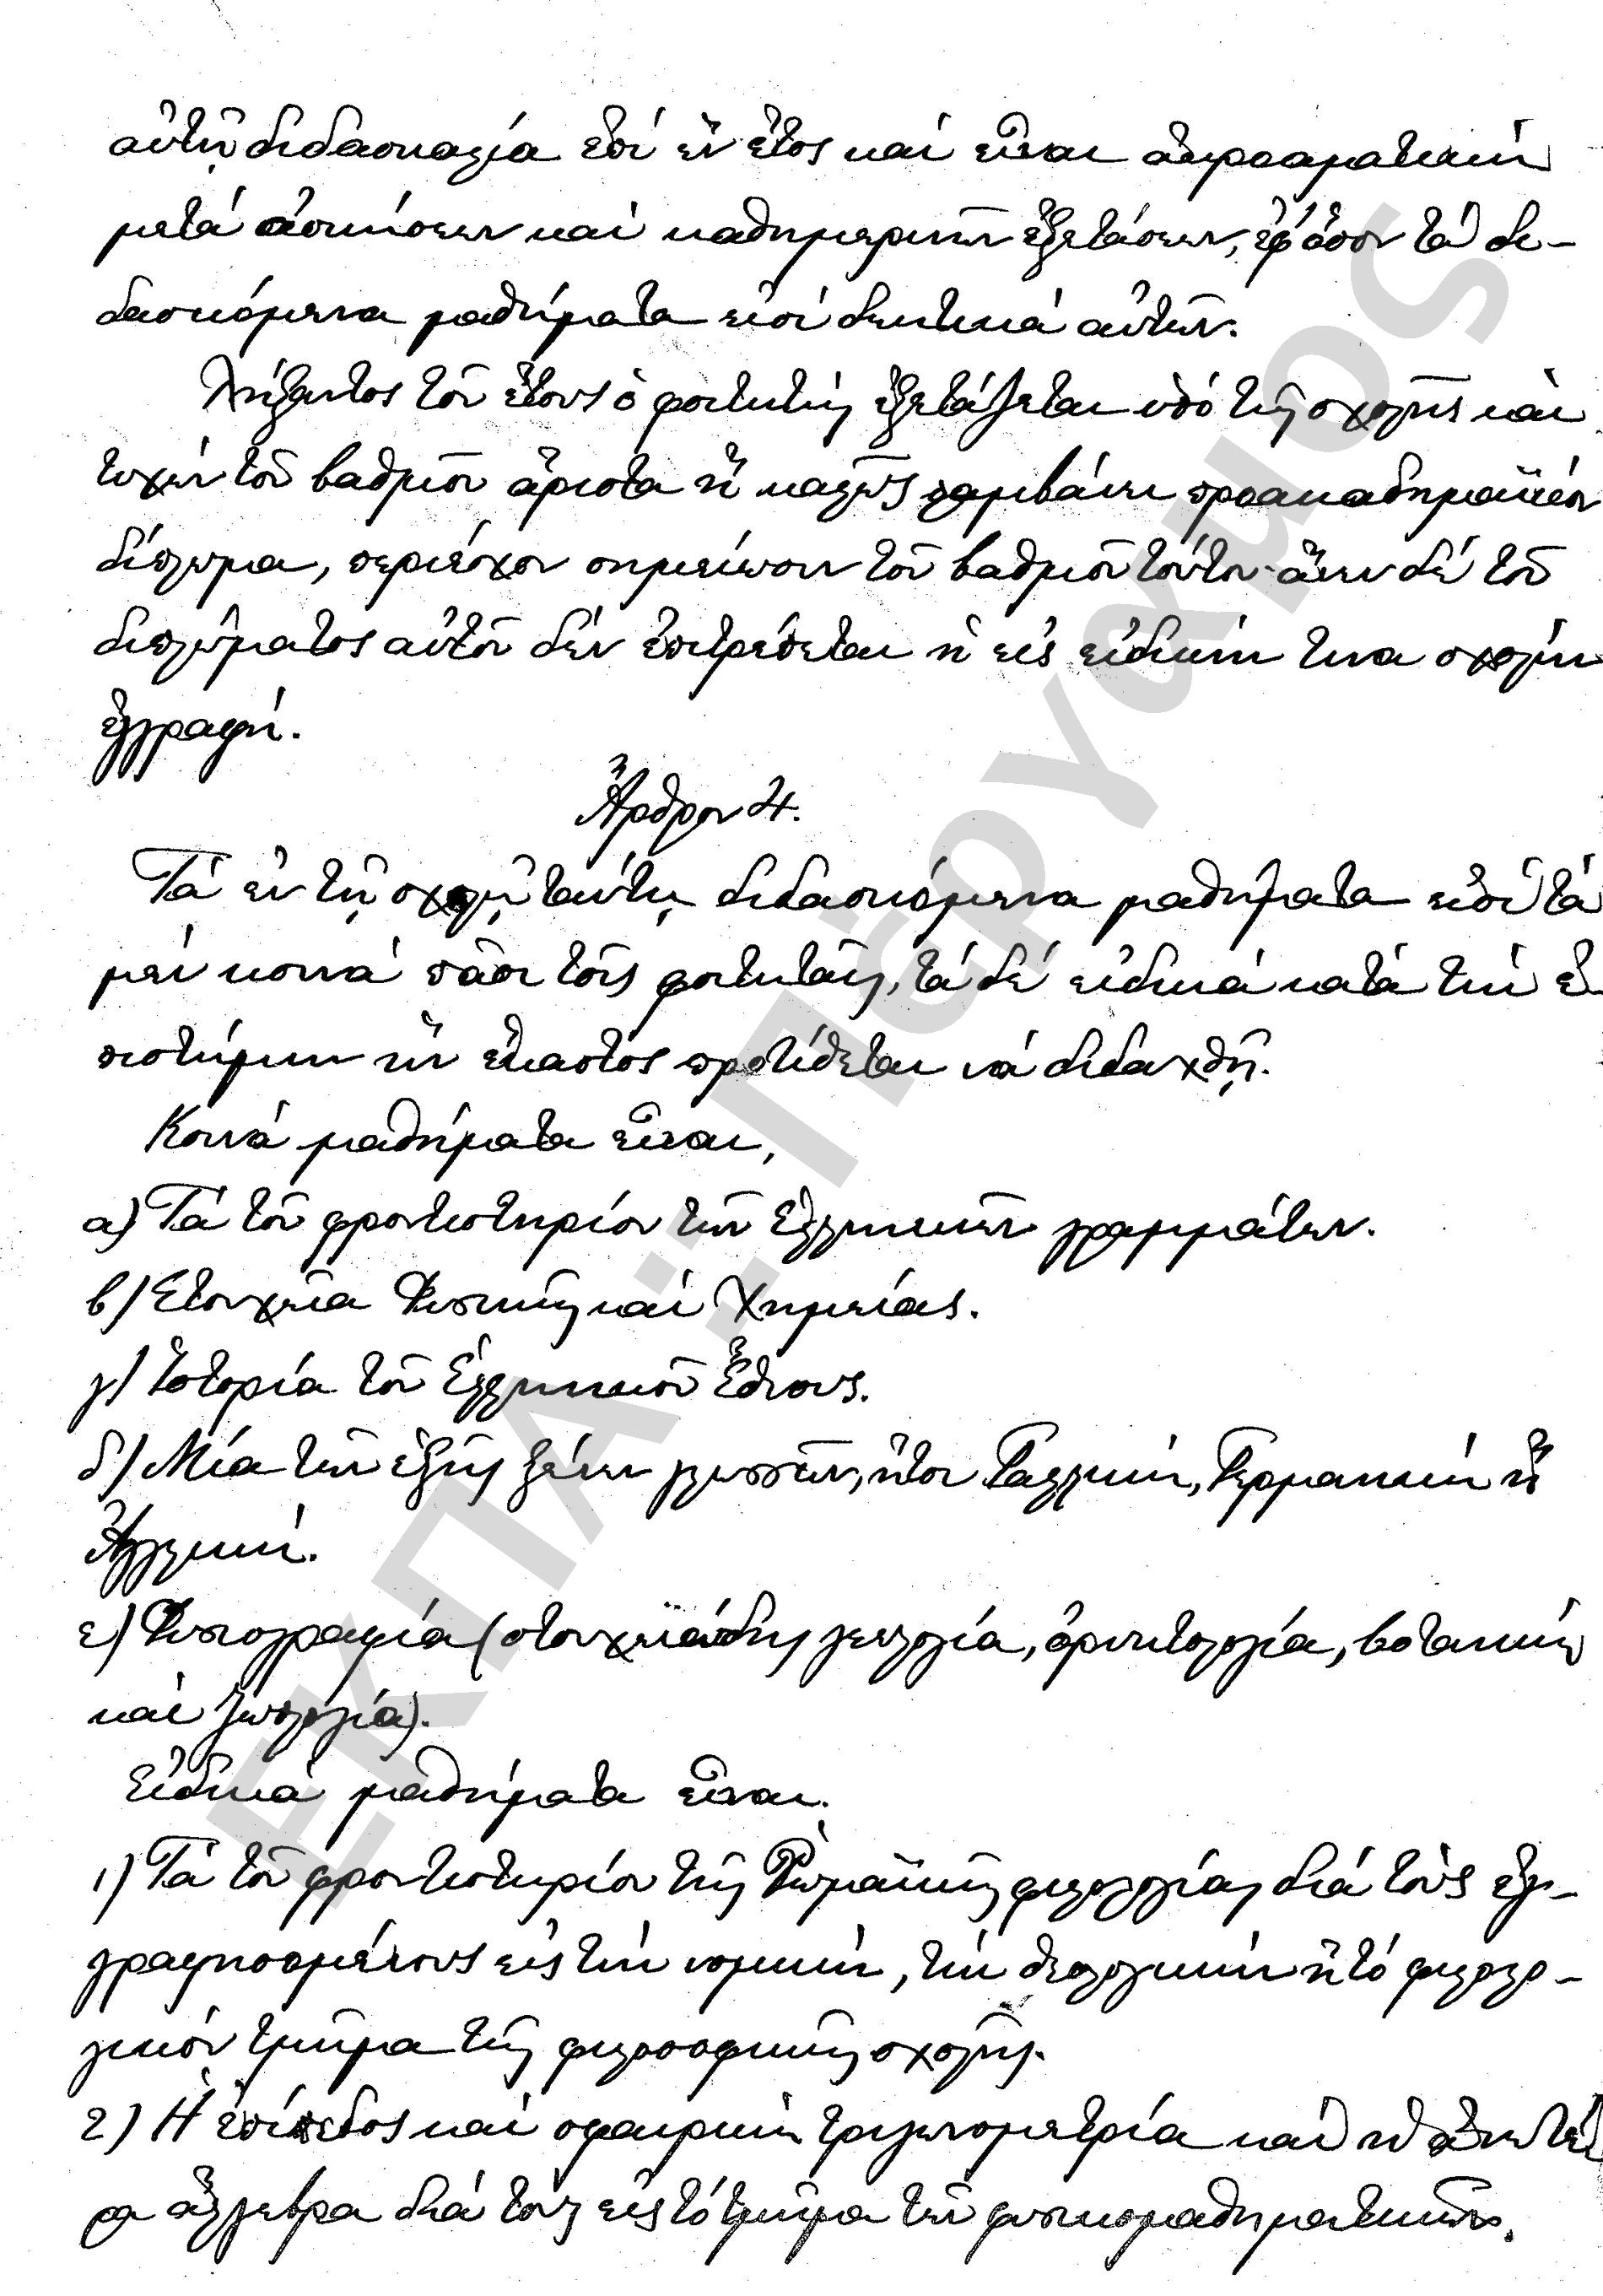 αὐτῇ διδασκαλία ἐπί ἕν ἔτος καί εἶναι ἀκροαματική
μετά ἀσκήσεων καί καθημερινῶν ἐξετάσεων, ἐφ' ὅσον τά δι-
δασκόμενα μαθήματα εἰσί δεκτικά αὐτῶν.
Λήξαντος τοῦ ἔτους ὁ φοιτητής ἐξετάζεται ὑπό τῆς σχολῆς καί
τυχών τοῦ βαθμοῦ ἄριστα ἤ καλῶς λαμβάνει προακαδημαϊκόν
δίπλωμα, περιέχον σημείωσιν τοῦ βαθμοῦ τούτου· ἄνευ δέ τοῦ
διπλώματος αὐτοῦ δέν ἐπιτρέπεται ἡ εἰς εἰδικήν τινα σχολήν
ἐγγραφή.
Ἄρθρον 4.
Τά ἐν τῇ σχολῇ ταύτῃ διδασκόμενα μαθήματα εἰσί τά
μέν κοινά πᾶσι τοῖς φοιτηταῖς, τά δέ εἰδικά κατά τήν ἐ-
πιστήμην ἥν ἕκαστος προτίθεται νά διδαχθῇ.
Κοινά μαθήματα εἶναι,
α) Τά τοῦ φροντιστηρίου τῶν Ἑλληνικῶν γραμμάτων.
β) Στοιχεῖα Φυσικῆς καί Χημείας.
γ) Ἱστορία τοῦ Ἑλληνικοῦ Ἔθνους.
δ) Μία τῶν ἑξῆς ξένων γλωσσῶν, ἤτοι Γαλλική, Γερμανική ἤ
Ἀγγλική.
ε) Φυσιογραφία (στοιχειώδης γεωλογία, ὀρυκτολογία, βοτανική
καί ζωολογία).
Εἰδικά μαθήματα εἶναι.
1) Τά τοῦ φροντιστηρίου τῆς Ῥωμαϊκῆς φιλολογίας διά τούς ἐγ-
γραφησομένους εἰς τήν νομικήν, τήν θεολογικήν ἤ τό φιλολο-
γικόν τμῆμα τῆς φιλοσοφικῆς σχολῆς.
2) Ἡ ἐπίπεδος καί σφαιρική τριγωνομετρία καί ἡ ἀνωτέ
ρα ἄλγεβρα διά τούς εἰς τό τμῆμα τῶν φυσικομαθηματικῶν.
ΕΚΠΑ: Πέργαμος